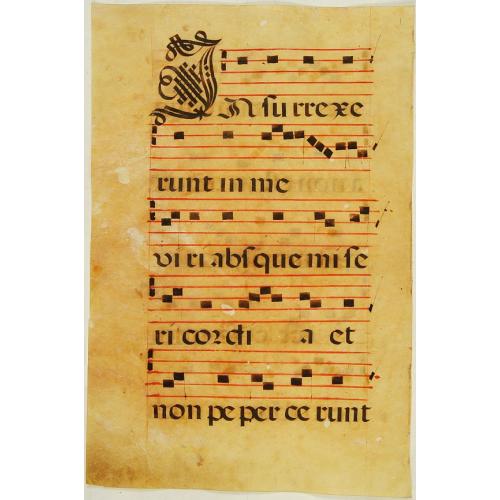 INsurrexe
runt in me
viri absque mise
ricordia et
non pepercerunt